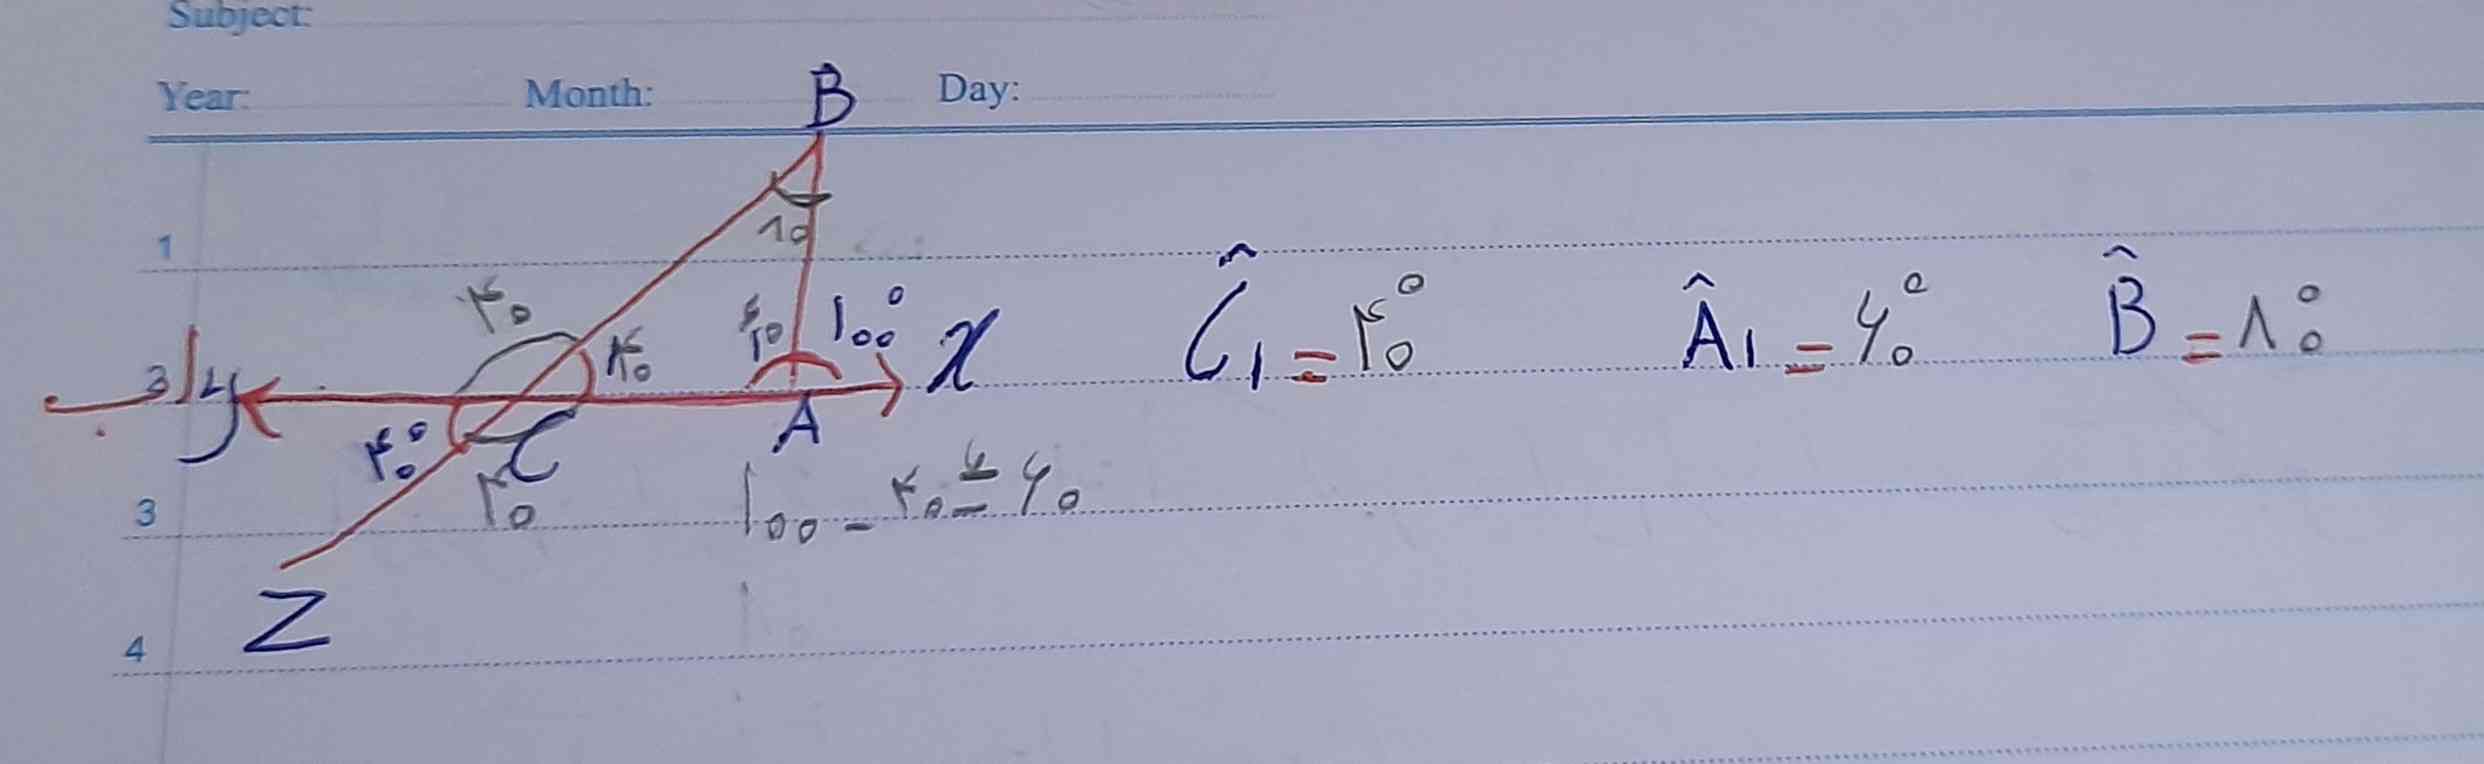 Subject:
Year: Month: Day:
B
1
۸۰
۴۰ ۴۰ ۶۰ ۱۰۰° x Ĉ₁ = ۴۰° Â₁ = ۶۰° B̂ = ۸۰°
y
۴۰° C A
۴۰ ۱۰۰ - ۴۰ = ۶۰
3
Z
4